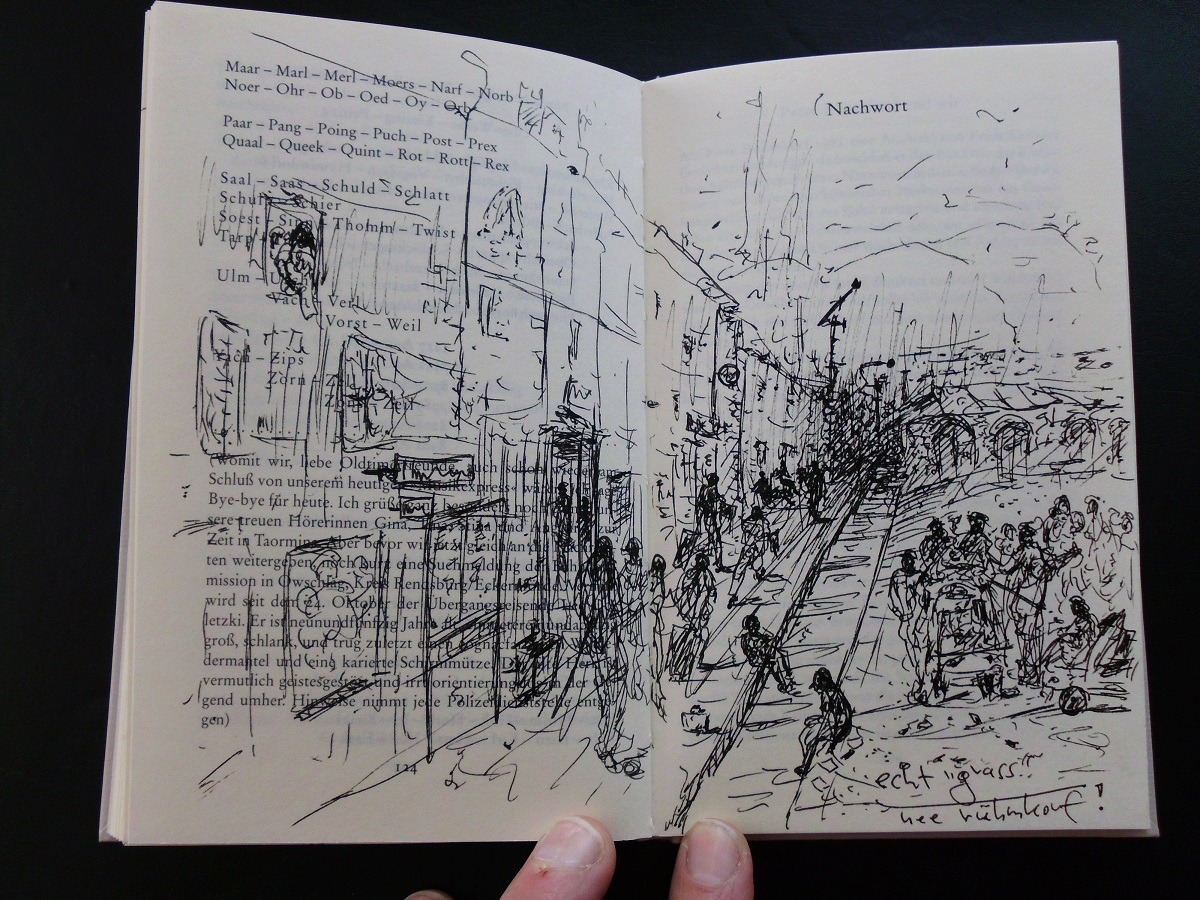 Maar – Marl – Merl – Moers – Narf – Norb
Noer – Ohr – Ob – Oed – Oy – Orb
Paar – Pang – Poing – Puch – Post – Prex
Quaal – Queek – Quint – Rot – Rott – Rex
Saal – Saas – Schuld – Schlatt
Schier
Soest – Thomm – Twist
Ulm –
Vach – Verl
Vorst – Weil
Zips
Zorn –
Zeil
(womit wir, liebe Oldtimefreunde, auch schon wieder am
Schluß von unserem heutigen
Bye-bye für heute. Ich
sere treuen Hörerinnen Gina, und
Zeit in Taormina. Aber bevor wir jetzt gleich an die
ten weitergeben, noch kurz eine Suchmeldung der
mission in Owschlag, Kreis Rendsburg/Eckernförde.
wird seit dem 24. Oktober der Übergangsreisende
letzki. Er ist neunundfünfzig Jahre alt,
groß, schlank, und trug zuletzt einen
dermantel und eine karierte Schirmmütze. Der alte Herr
vermutlich geistesgestört und irrt orientierungslos in der
gend umher. Hinweise nimmt jede Polizeidienststelle entge-
gen)
124
Nachwort
echt "grass"
nee rühmkorf!